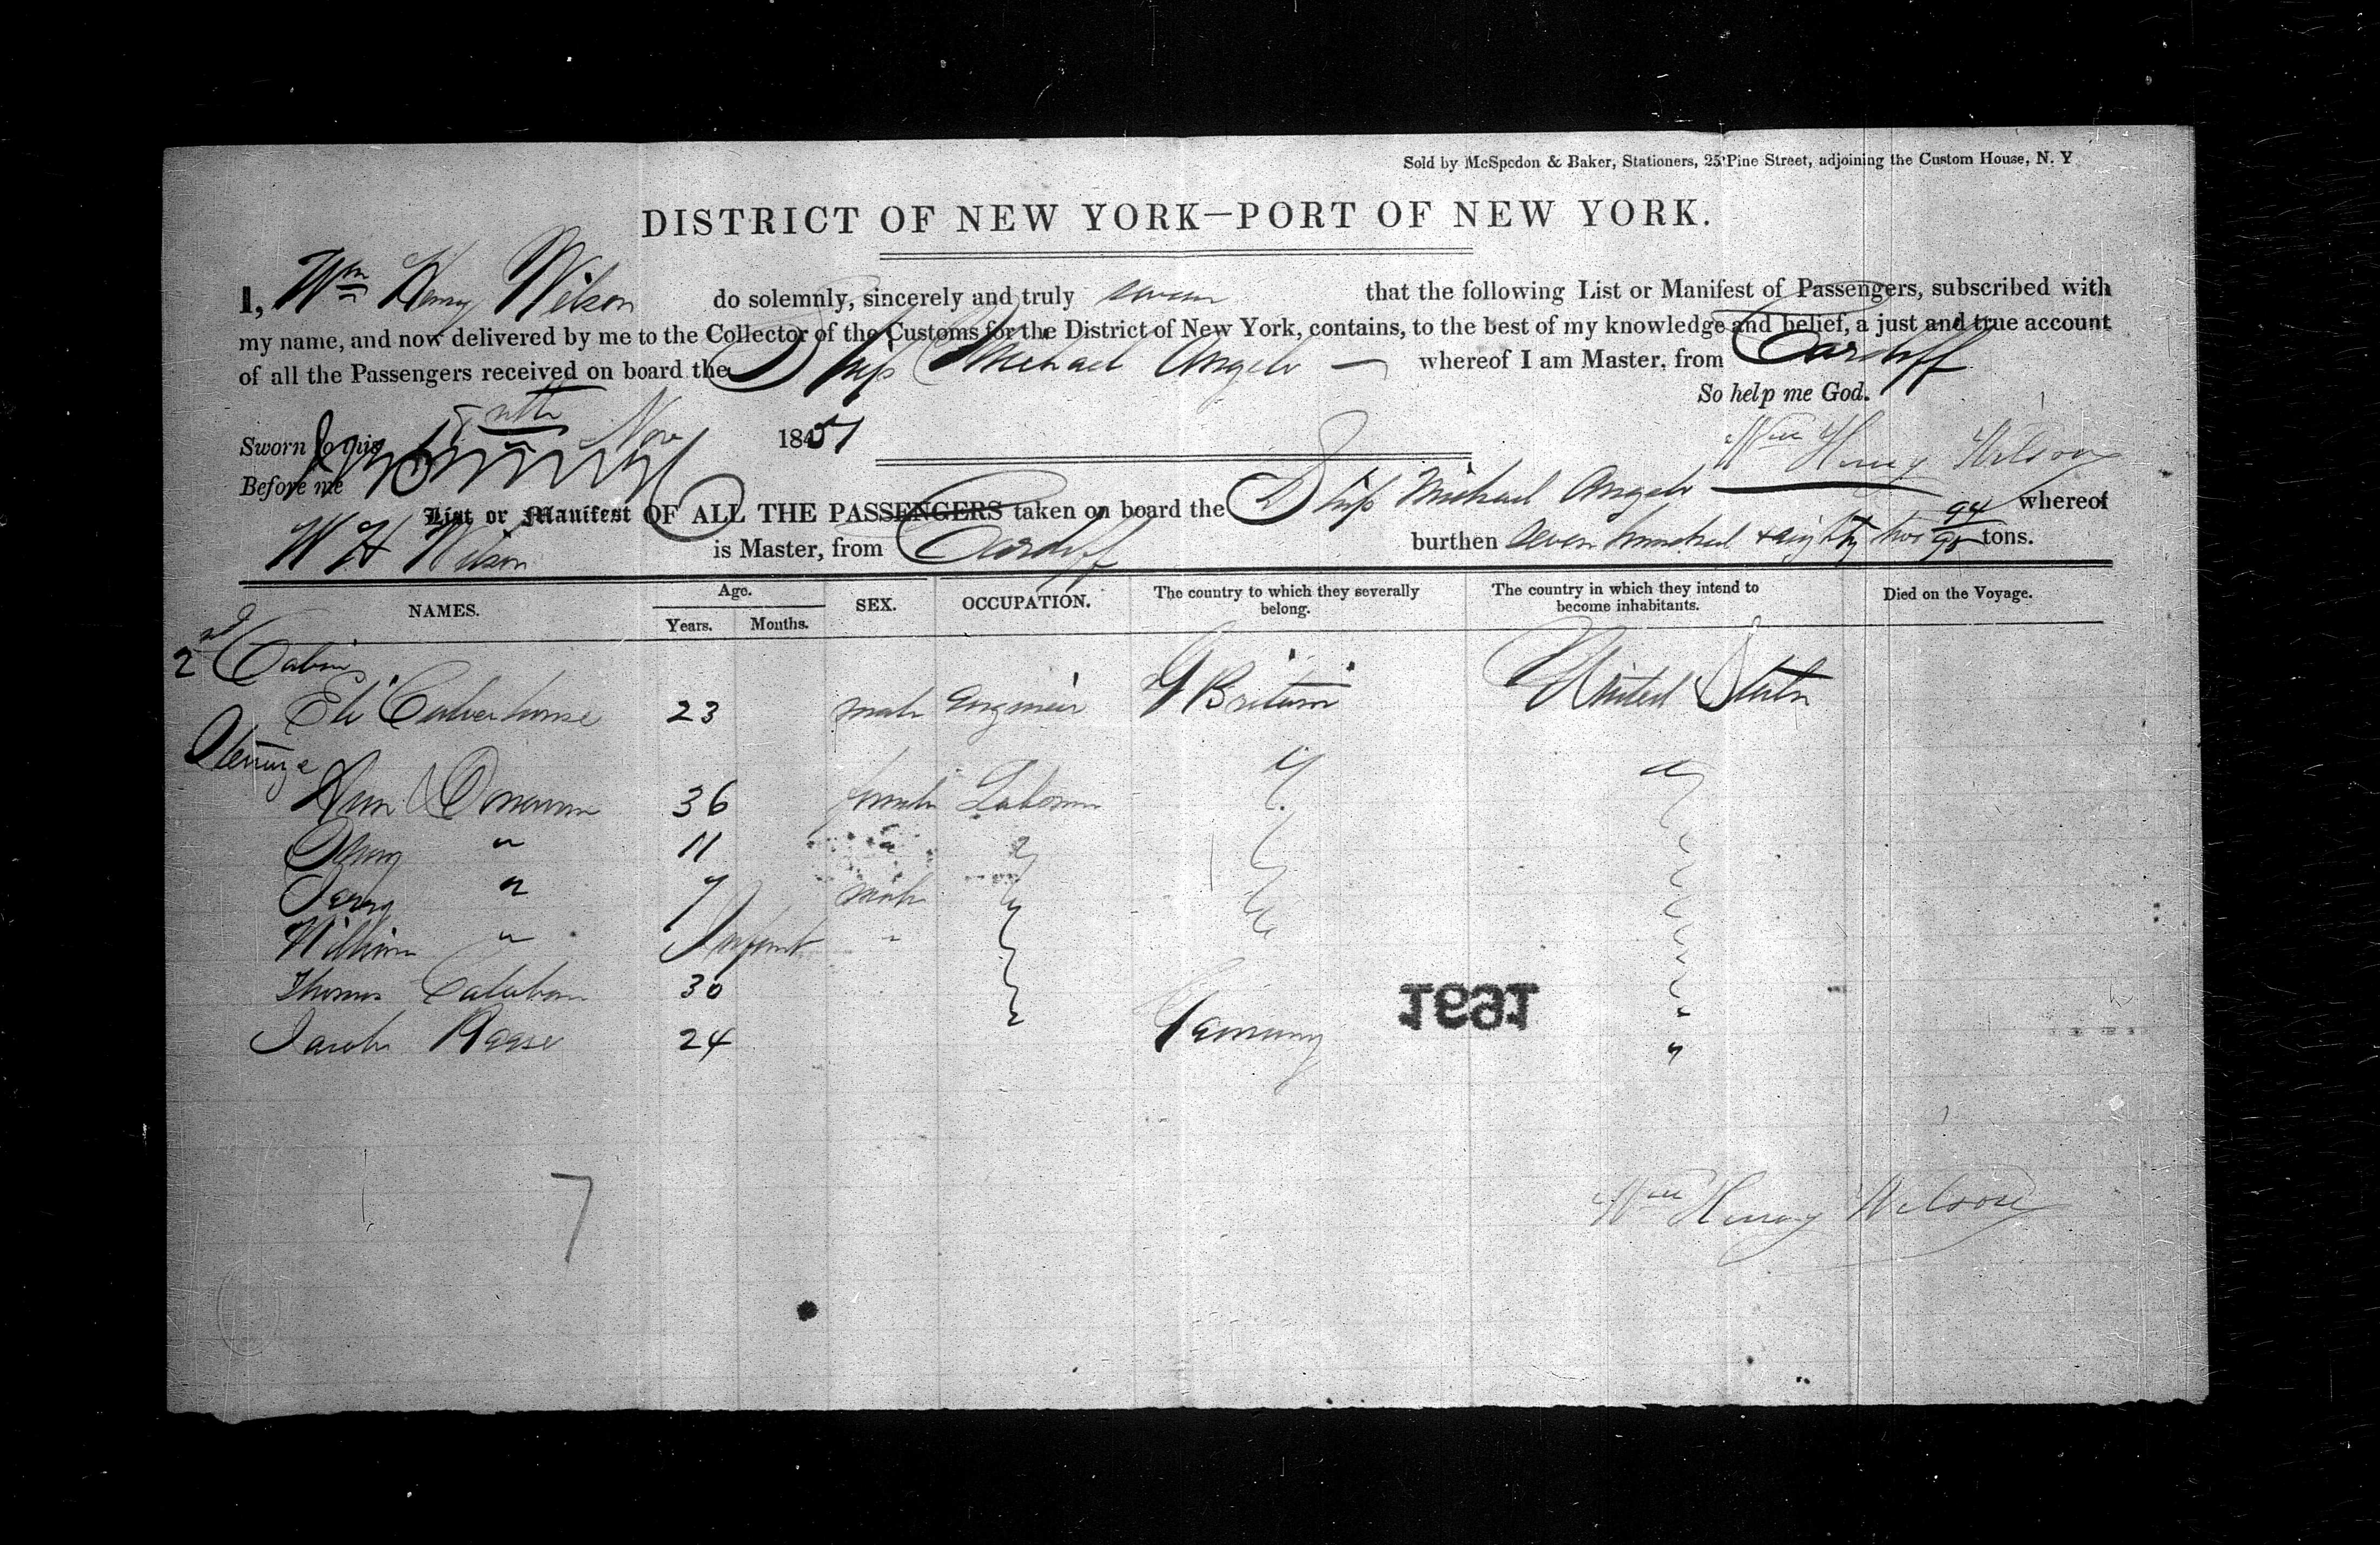 Sold by McSpedon & Baker, Stationers, 25 Pine Street, adjoining the Custom House, N. Y
DISTRICT OF NEW YORK—PORT OF NEW YORK.
I, Wm Henry Wilson do solemnly, sincerely and truly swear that the following List or Manifest of Passengers, subscribed with
my name, and now delivered by me to the Collector of the Customs for the District of New York, contains, to the best of my knowledge and belief, a just and true account
of all the Passengers received on board the Ship Michael Angelo — whereof I am Master, from Cardiff
So help me God.
Sworn to this Nov 1851
Wm Henry Wilson
Before me
List or Manifest OF ALL THE PASSENGERS taken on board the Ship Michael Angelo — whereof
W H Wilson is Master, from Cardiff burthen Seven hundred & eighty two 94/95 tons.
NAMES. Age. SEX. OCCUPATION. The country to which they severally belong. The country in which they intend to become inhabitants. Died on the Voyage.
Years. Months.
2nd Cabin
Eli Culverhouse 23 male Engineer G Britain United States
Steerage
Ann Donovan 36 female Labourer "
" 11 " "
" 7 male "
William " Infant "
Thomas Calahan 30
Jacob 24 Germany "
1851
7
Wm Henry Wilson